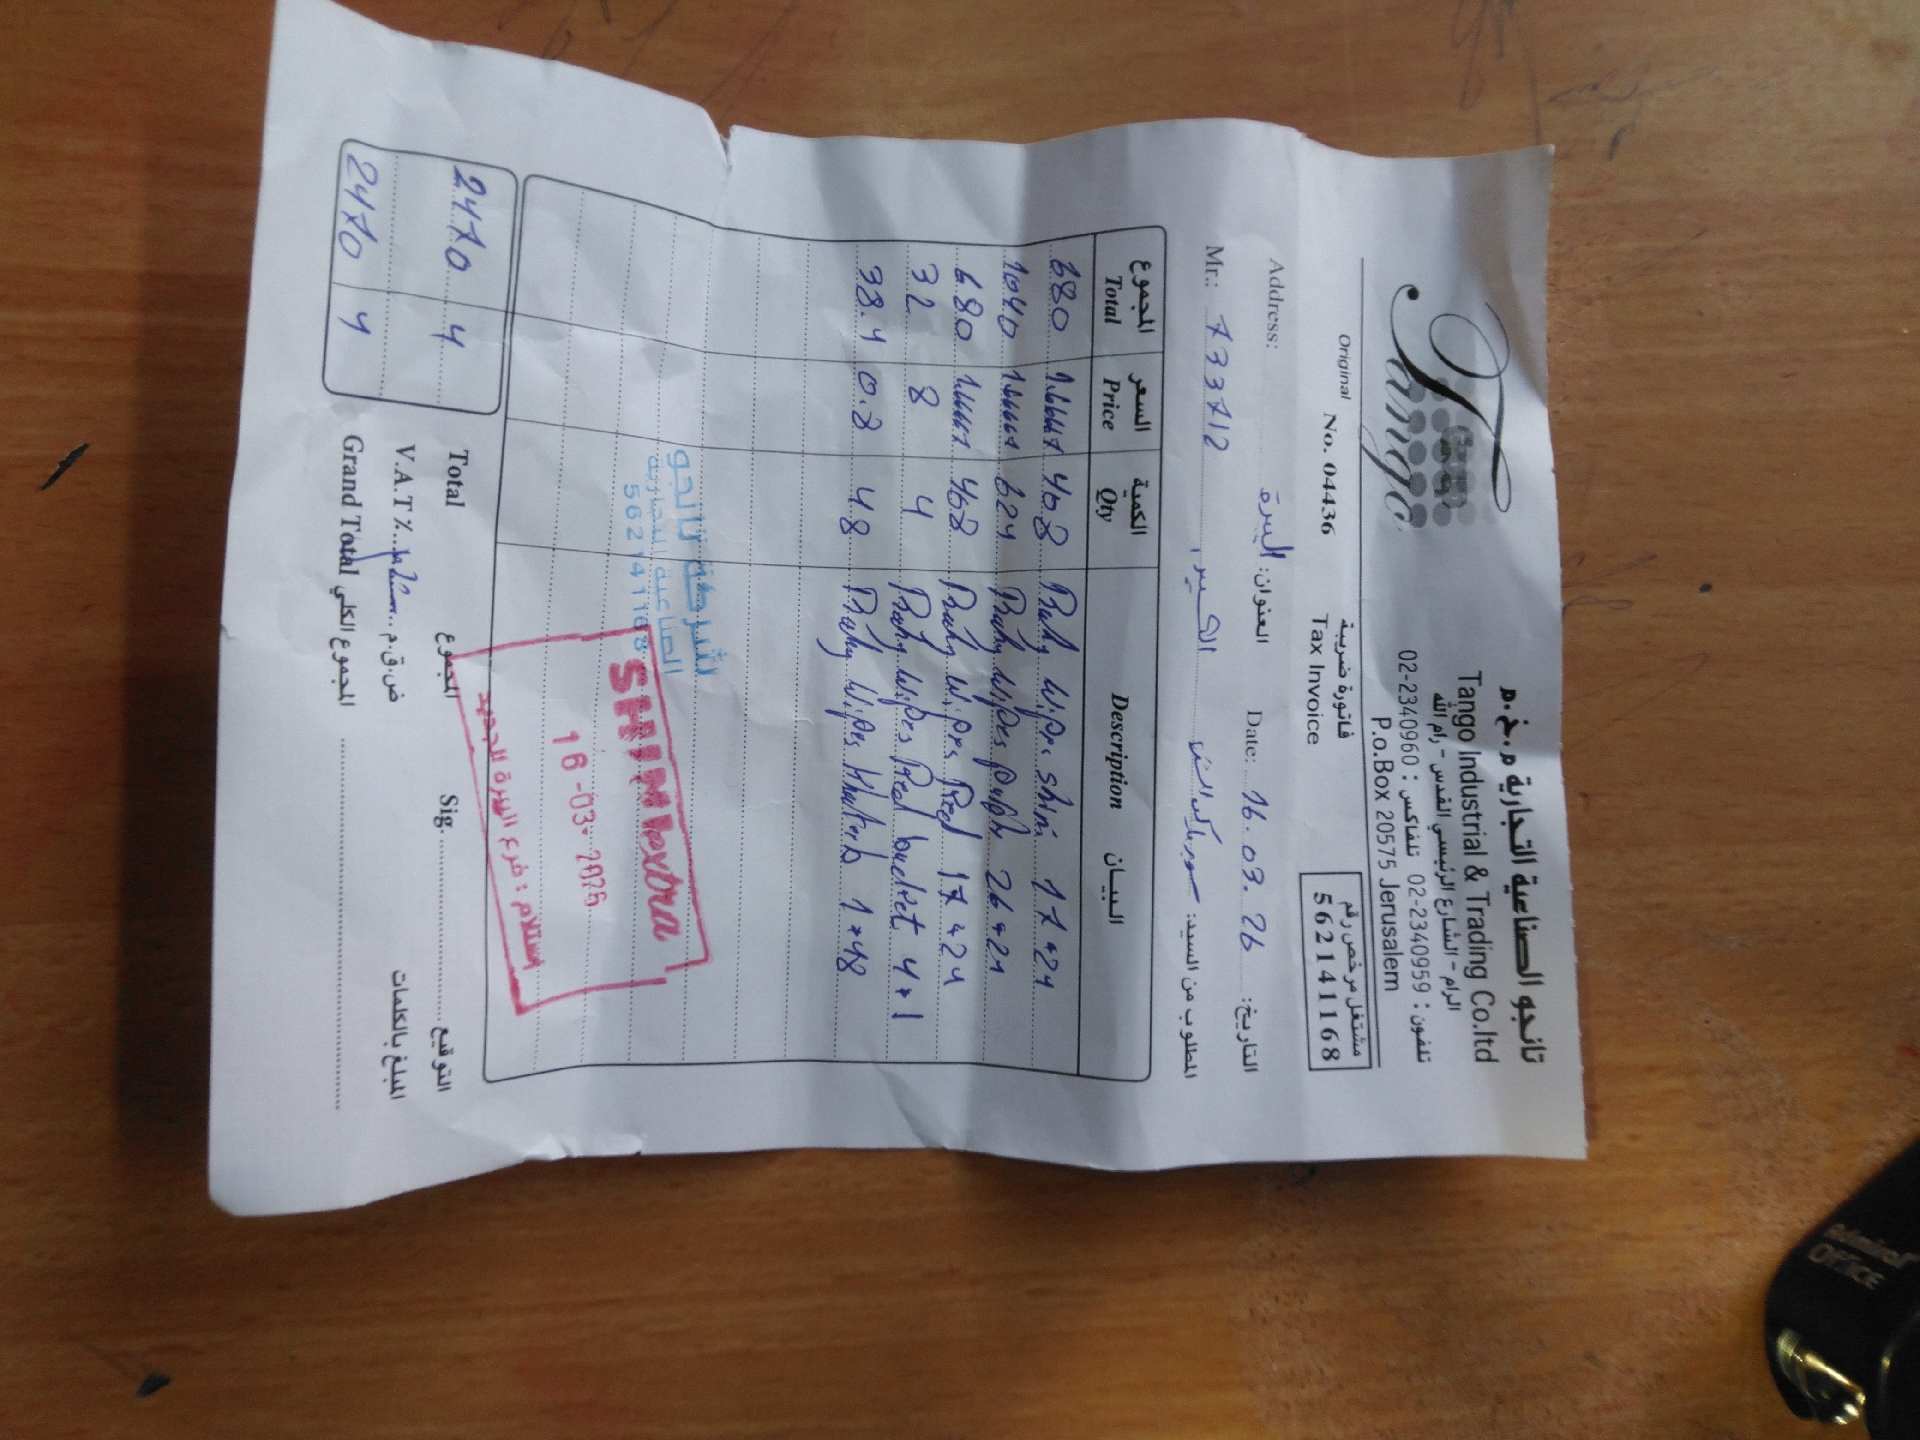 تانجو الصناعية التجارية م.خ.م
Tango Industrial & Trading Co.ltd
الرام - الشارع الرئيسي القدس - رام الله
تلفون : 02-2340959 تلفاكس : 02-2340960
P.o.Box 20575 Jerusalem
Tango
Original No. 04436
فاتورة ضريبة
Tax Invoice
مشتغل مرخص رقم
562141168
Address: البيرة العنوان: Date: 16.03.26 التاريخ:
Mr.: 733712 المطلوب من السيد:
المجموع السعر الكمية البيـــان
Total Price Qty Description
680 1.6667 408 Baby Wipes 17*24
1040 1.6667 624 Baby Wipes 26*24
680 1.6667 408 Baby Wipes Red 17*24
32 8 4 Baby Wipes Red bucket 4*1
38.4 0.8 48 Baby Wipes 1*48
شركة تانجو
الصناعية التجارية
562141168
SHINI extra
16-03-2026
استلام : فرع البيرة الجديد
2470 4 Total المجموع Sig. التوقيع
V.A.T % ض.ق.م المبلغ بالكلمات
2470 4 Grand Total المجموع الكلي
Admiral
OFFICE